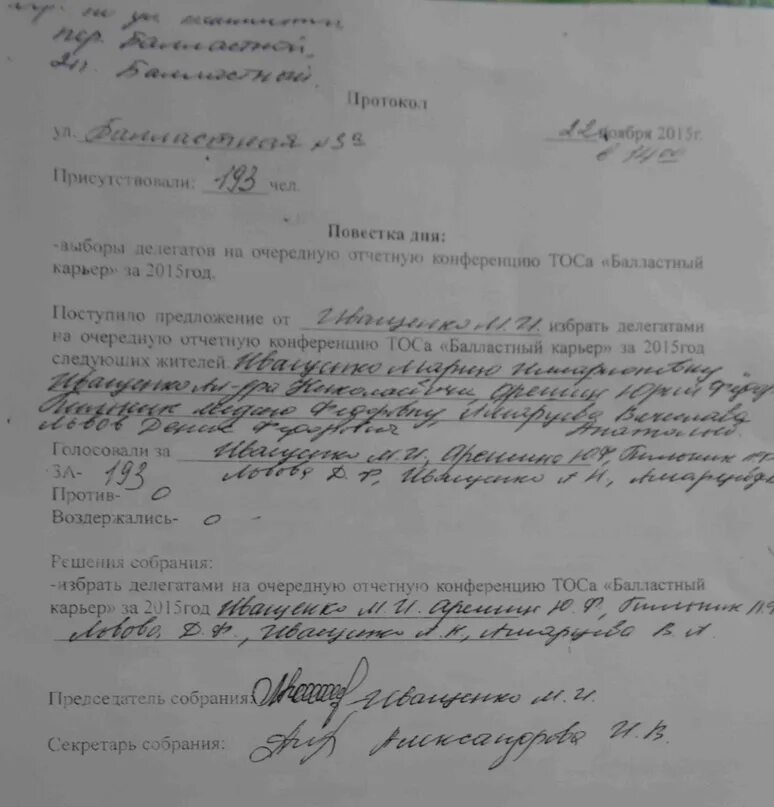 пер. Балластной
2п. Балластный
Протокол
ул. Балластная №39 22 ноября 2015г.
в 14 00
Присутствовали: 193 чел.
Повестка дня:
-выборы делегатов на очередную отчетную конференцию ТОСа «Балластный
карьер» за 2015год.
Поступило предложение от Иващенко М.И. избрать делегатами
на очередную отчетную конференцию ТОСа «Балластный карьер» за 2015год
следующих жителей Иващенко Марию Иларионовну
Иващенко Ал-дра Николаевича Арешин Юрий
Пильник Федоровну, Вячеслава
Львов Денис Федорович Анатольев.
Голосовали за Иващенко М.И. Арешина Ю.Ф, Пильник
ЗА- 193 Львова Д.Ф, Иващенко А Н,
Против- 0
Воздержались- 0 -
Решения собрания:
-избрать делегатами на очередную отчетную конференцию ТОСа «Балластный
карьер» за 2015год Иващенко М.И. Арешин Ю.Ф, Пильник
Львова Д.Ф., Иващенко А.Н, В.А
Председатель собрания: Иващенко М.И.
Секретарь собрания: Александрова И.В.